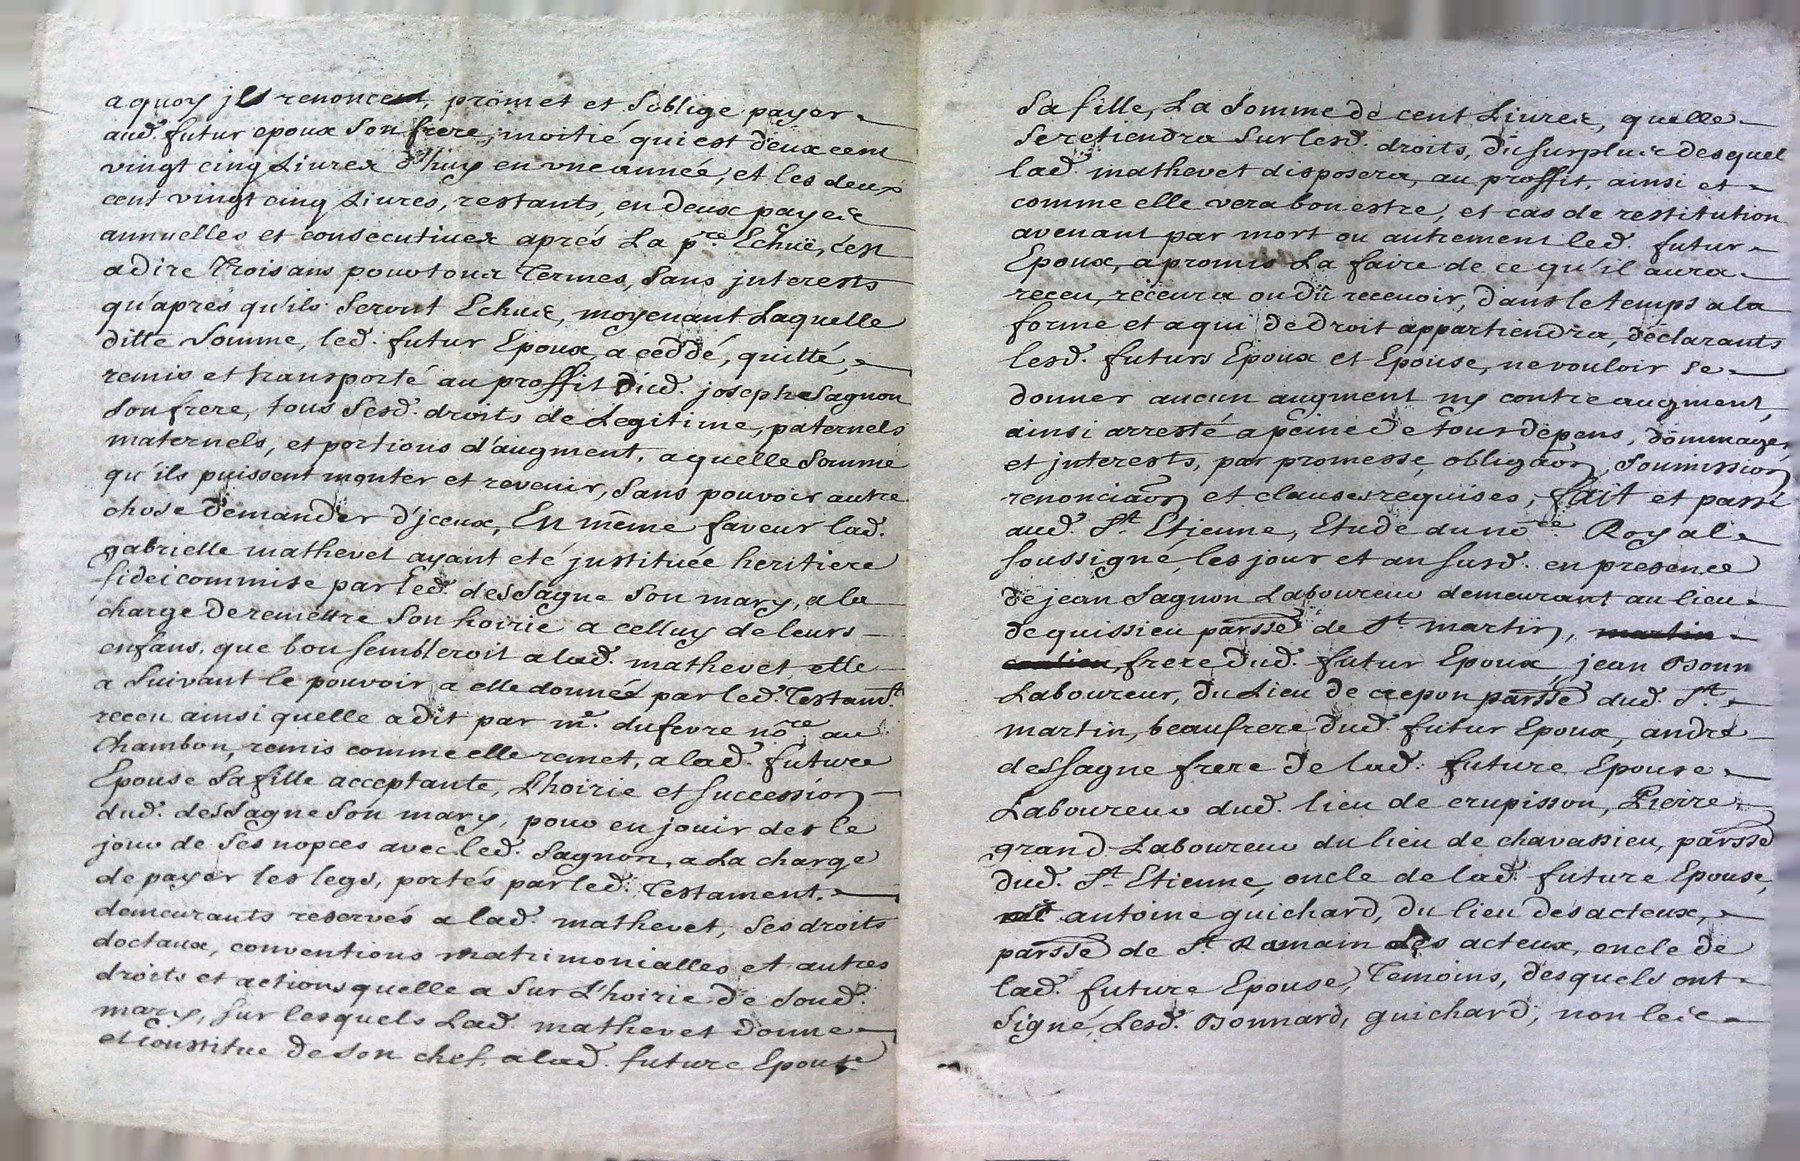 a quoy jls renoncent, promet et s'oblige payer
aud. futur epoux son frere, moitié qui est deux cent
vingt cinq Livres d'huy en vne année, et les deux
cent vingt cinq Livres, restants, en deux payes
annuelles et consecutives aprés La p.re Echuë, c'est
a dire trois ans pour tous termes, sans jnterests
qu'aprés qu'ils seront Echus, moyenant Laquelle
ditte somme, led. futur Epoux, a ceddé, quitté,
remis et transporté au proffit dud. joseph Sagnon
son frere, tous sesd. droits de Legitime, paternels
maternels, et portions d'augment, a quelle somme
qu'ils puissent monter et revenir, sans pouvoir autre
chose demander d'jceux, En même faveur lad.
gabrielle mathevet ayant eté jnstituée heritiere
fideicommise par led. dessagne son mary, a la
charge de remettre son hoirie a celluy de leurs
enfans, que bon sembleroit a lad. mathevet, elle
a suivant le pouvoir a elle donnée par led. Testam.t
receu ainsi quelle a dit par m.e dufevre no.re au
Chambon, remis comme elle remet, a lad. future
Epouse sa fille acceptante, L'hoirie et succession
dud. dessagne son mary, pour en jouir des le
jour de ses nopces avec led. Sagnon, a La charge
de payer les legs, portés par led. Testament.
demeurants reservés a lad. mathevet, ses droits
doctaux, conventions matrimonialles et autres
droits et actions quelle a sur L'hoirie de soud.
mary, sur lesquels Lad. mathevet donne
et constitue de son chef, a lad. future Epouse
sa fille, La somme de cent Livres, quelle
se retiendra sur lesd. droits, du surplus desquel
lad. mathevet disposera, au proffit, ainsi et
comme elle vera bon estre, et cas de restitution
avenant par mort ou autrement led. futur
Epoux, a promis La faire de ce qu'il aura
receu, recevra ou dû recevoir, dans le temps a la
forme et a qui de droit appartiendra, déclarants
lesd. futurs Epoux et Epouse, ne vouloir se
donner aucun augment ny contre augment,
ainsi arresté a peine de tous dépens, dommages
et jnterests, par promesse, obliga͠on, soumission
renoncia͠on et clauses requises, fait et passé
aud. S.t Etienne, Etude du no.re Royal
soussigné, les jour et an susd. en presence
de jean Sagnon Laboureur demeurant au lieu
de quissieu parsse de S.t martin, martin
frere dud. futur Epoux, jean Bonn
Laboureur, du Lieu de crepon parsse dud. S.t
martin, beaufrere dud. futur Epoux, andré
dessagne frere de lad. future Epouse
Laboureur dud. lieu de crupisson, Pierre
grand Laboureur du lieu de chavassieu, parsse
dud. S.t Etienne, oncle de lad. future Epouse,
antoine guichard, du lieu des acteux,
parsse de S.t Romain des acteux, oncle de
lad. future Epouse, Temoins, desquels ont
signé, Lesd. Bonnard, guichard, non les